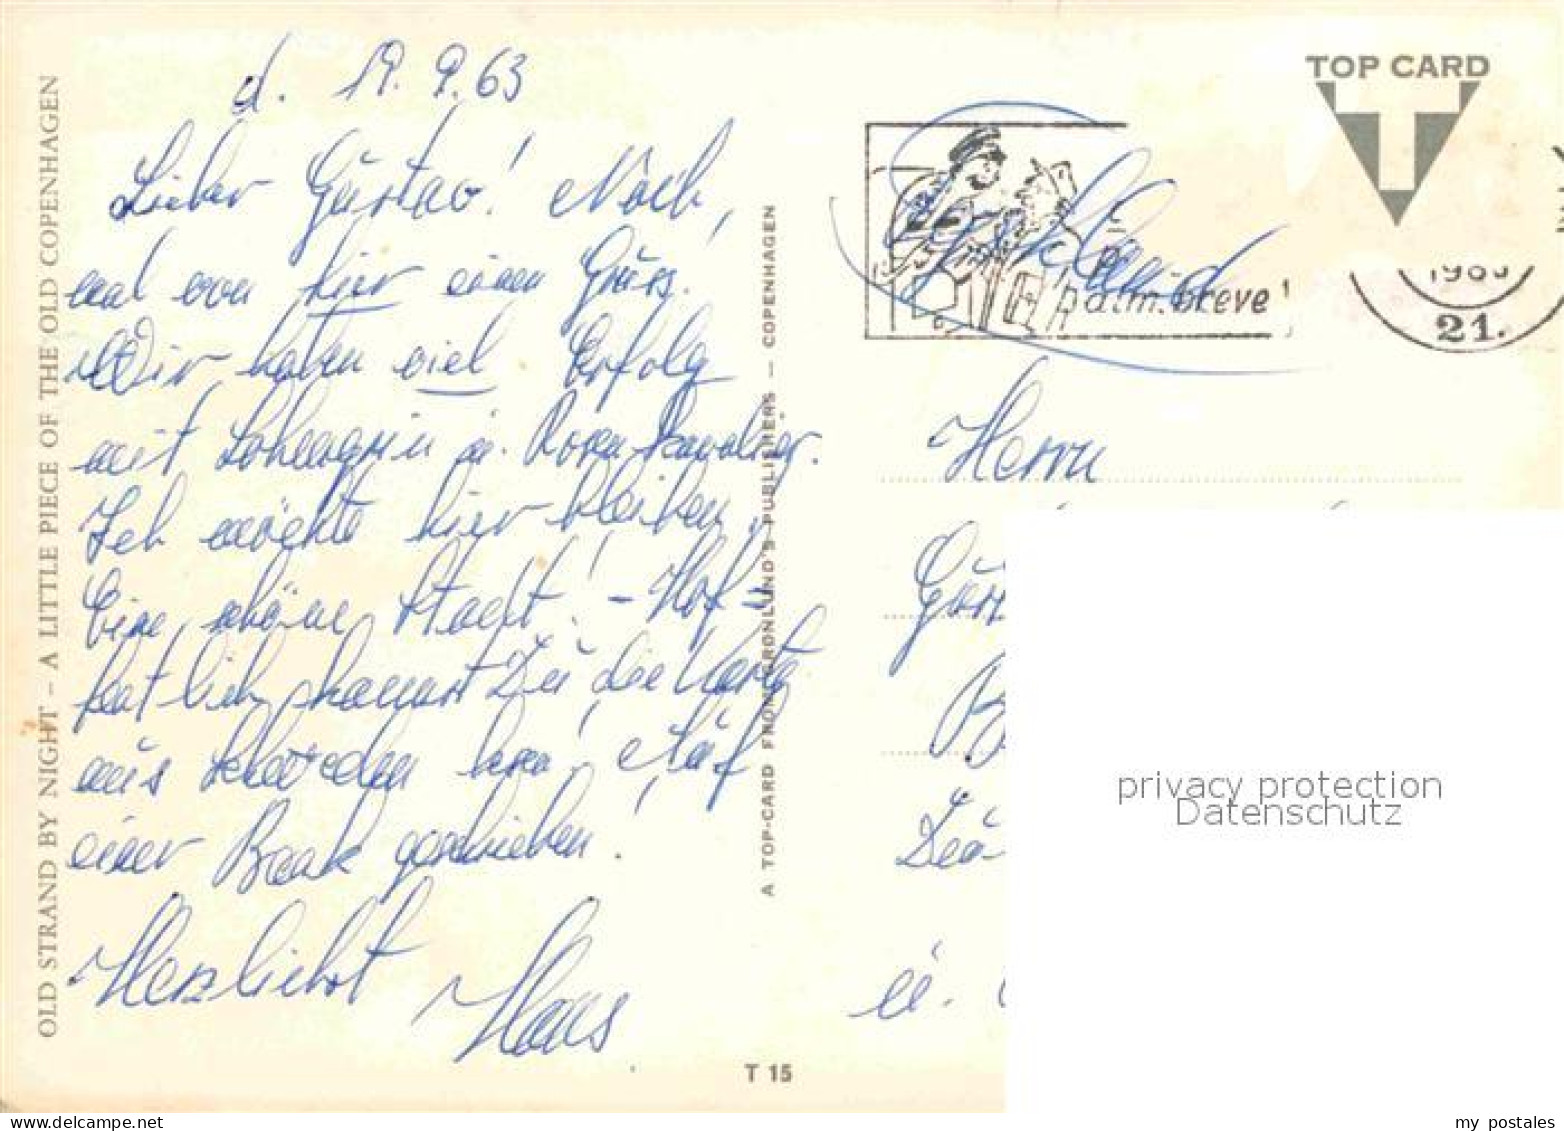 OLD STRAND BY NIGHT – A LITTLE PIECE OF THE OLD COPENHAGEN
d. 19. 9. 63
Lieber Gustav! Noch
mal von hier einen Gruss.
Wir haben viel Erfolg
mit Lohengrin u. Rosenkavalier.
Ich möchte hier bleiben,
Eine schöne Stadt! – Hof=
fentlich kannst Du die Karte
aus Schweden lesen! Auf
einer Bank geschrieben!
Herzlichst
Hans
A TOP-CARD FROM GRØNLUND'S PUBLISHERS — COPENHAGEN
T 15
TOP CARD
T
breve
21.
Herrn
u.
privacy protection
Datenschutz
my postales